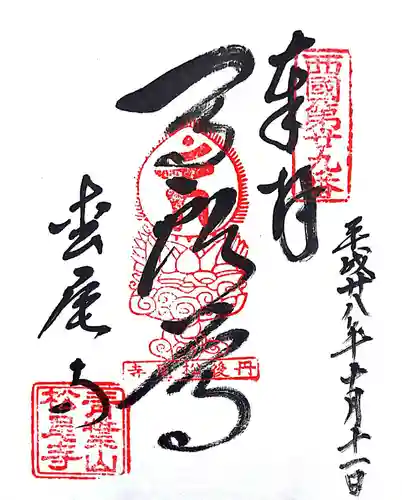 奉拝
西國第廿九番
平成廿八年十月十一日
馬頭尊
丹後松尾寺
松尾寺
青葉山
松尾寺